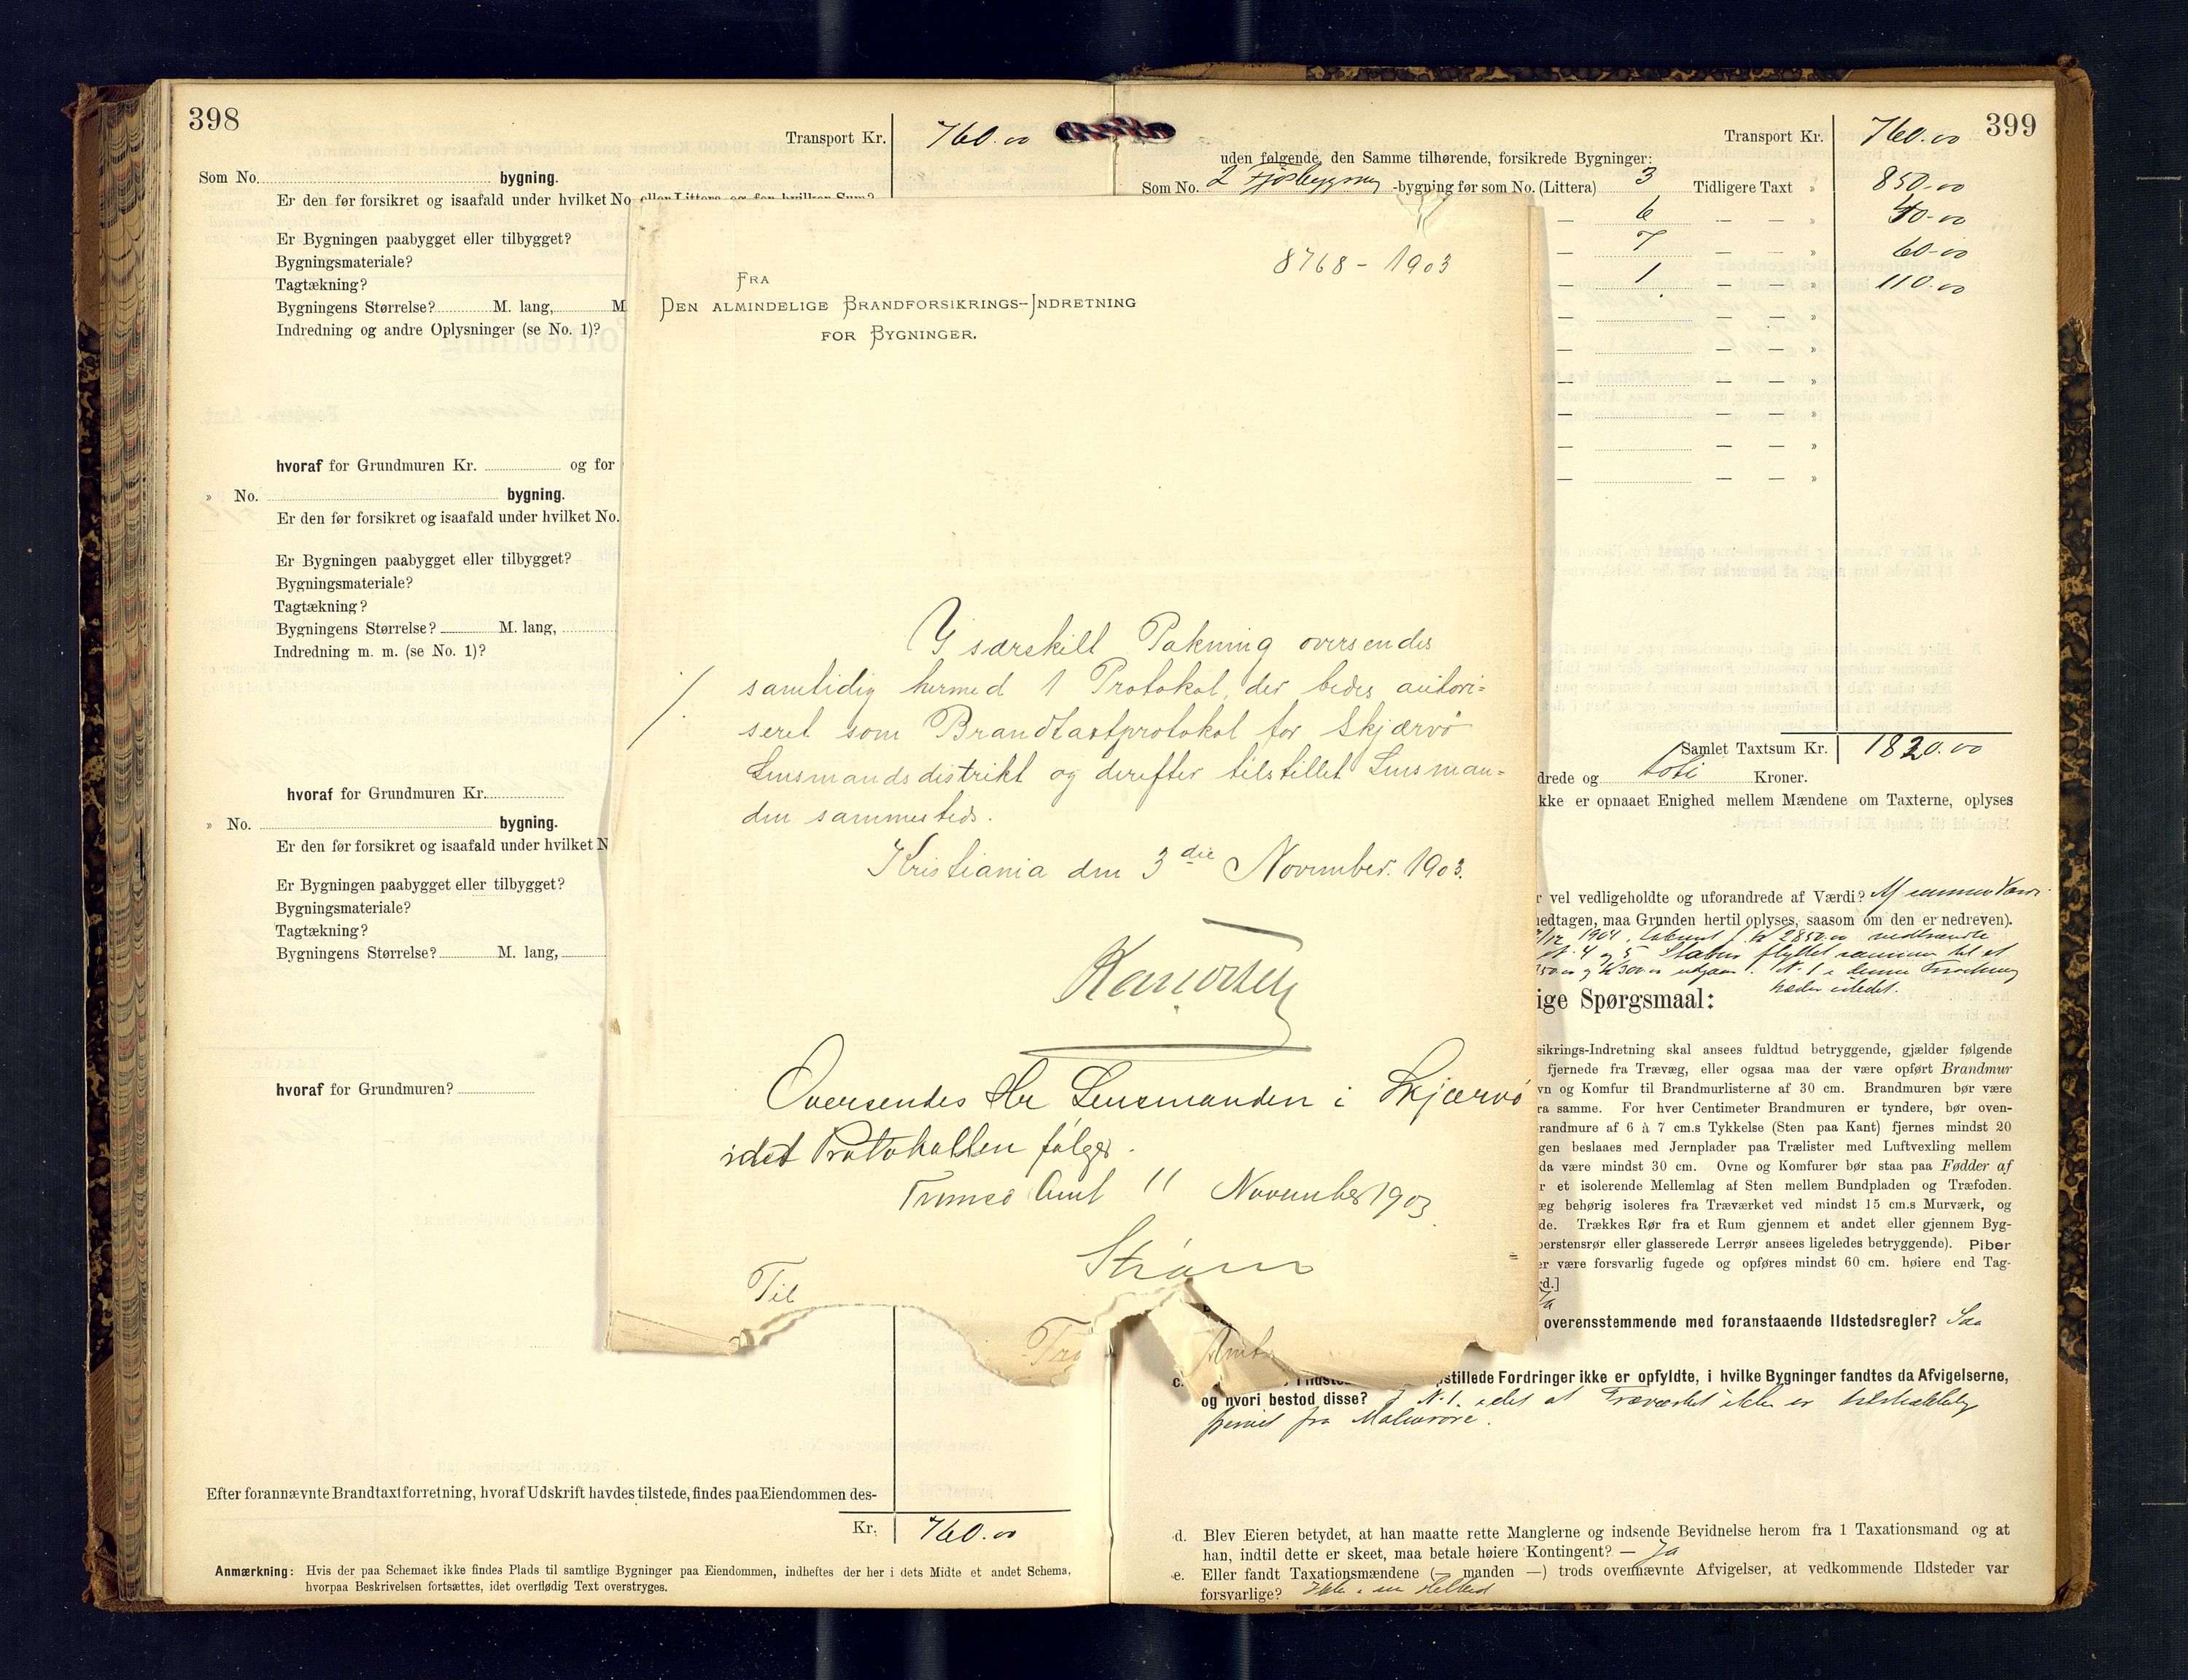 398
Transport Kr. 760.00
Som No. bygning.
Er den før forsikret og isaafald under hvilket No. eller Littera og for hvilken Sum?
Er Bygningen paabygget eller tilbygget?
Bygningsmateriale?
Tagtækning?
Bygningens Størrelse? M. lang, M
Indredning og andre Oplysninger (se No. 1)?
hvoraf for Grundmuren Kr. og for
» No. bygning.
Er den før forsikret og isaafald under hvilket No.
Er Bygningen paabygget eller tilbygget?
Bygningsmateriale?
Tagtækning?
Bygningens Størrelse? M. lang,
Indredning m. m. (se No. 1)?
hvoraf for Grundmuren Kr.
» No. bygning.
Er den før forsikret og isaafald under hvilket N
Er Bygningen paabygget eller tilbygget?
Bygningsmateriale?
Tagtækning?
Bygningens Størrelse? M. lang,
hvoraf for Grundmuren?
Efter forannævnte Brandtaxtforretning, hvoraf Udskrift havdes tilstede, findes paa Eiendommen des-
Kr. 760.00
Anmærkning: Hvis der paa Schemaet ikke findes Plads til samtlige Bygninger paa Eiendommen, indheftes der her i dets Midte et andet Schema,
hvorpaa Beskrivelsen fortsættes, idet overflødig Text overstryges.
8768 - 1903
Fra
Den almindelige Brandforsikrings-Indretning
for Bygninger.
I særskilt Pakning oversendes
samtidig hermed 1 Protokol, der bedes autori=
seret som Brandtaxtprotokol for Skjærvö
Lensmandsdistrikt og derefter tilstillet Lensman=
den sammesteds.
Kristiania den 3die November. 1903.
Oversendes Hr Lensmanden i Skjærvö
idet Protokollen følger.
Tromsö Amt 11 November 1903.
Strøm
Til
Tro Amt
399
Transport Kr. 760.00
uden følgende, den Samme tilhørende, forsikrede Bygninger:
Som No. 2 Fjøsbygning -bygning før som No. (Littera) 3 Tidligere Taxt » 850.00
— 6 — — » 40.00
— 7 — — » 60.00
— 1 — — » 110.00
— — — »
— — — »
— — — »
— — — »
— — — »
— — — »
Samlet Taxtsum Kr. 1820.00
drede og Kroner.
kke er opnaaet Enighed mellem Mændene om Taxterne, oplyses
r vel vedligeholdte og uforandrede af Værdi? Af samme Værdi
nedtagen, maa Grunden hertil oplyses, saasom om den er nedreven).
/12 1904. 2850.00 nedbrændte
N. 4 og 5 flyttet sammen til et
og 300.00 udgaar. N. 1 i denne Forretning
ige Spørgsmaal:
sikrings-Indretning skal ansees fuldtud betryggende, gjælder følgende
fjernede fra Trævæg, eller ogsaa maa der være opført Brandmur
vn og Komfur til Brandmurlisterne af 30 cm. Brandmuren bør være
ra samme. For hver Centimeter Brandmuren er tyndere, bør oven-
randmure af 6 à 7 cm.s Tykkelse (Sten paa Kant) fjernes mindst 20
gen beslaaes med Jernplader paa Trælister med Luftvexling mellem
da være mindst 30 cm. Ovne og Komfurer bør staa paa Fødder af
r et isolerende Mellemlag af Sten mellem Bundpladen og Træfoden.
æg behørig isoleres fra Træværket ved mindst 15 cm.s Murværk, og
de. Trækkes Rør fra et Rum gjennem et andet eller gjennem Byg-
berstensrør eller glasserede Lerrør ansees ligeledes betryggende). Piber
er være forsvarlig fugede og opføres mindst 60 cm. høiere end Tag-
rd.]
overensstemmende med foranstaaende Ildstedsregler?
c. pstillede Fordringer ikke er opfyldte, i hvilke Bygninger fandtes da Afvigelserne,
og hvori bestod disse? I N. 1. idet at Træværket ikke er tilstrækkelig
fjernet fra
d. Blev Eieren betydet, at han maatte rette Manglerne og indsende Bevidnelse herom fra 1 Taxationsmand og at
han, indtil dette er skeet, maa betale høiere Kontingent? — Ja
e. Eller fandt Taxationsmændene (— manden —) trods ovennævnte Afvigelser, at vedkommende Ildsteder var
forsvarlige?